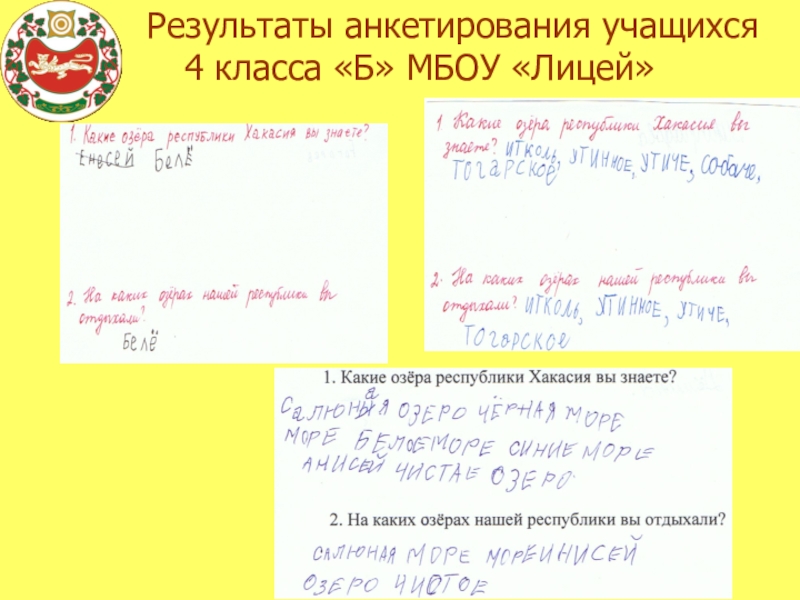 Результаты анкетирования учащихся
4 класса «Б» МБОУ «Лицей»
1. Какие озёра республики Хакасия вы знаете?
Енесей Белё
2. На каких озёрах нашей республики вы
отдыхали?
Белё
1. Какие озёра республики Хакасия вы
знаете? итколь, утинное, утиче, собаче,
Тогарское
2. На каких озёрах нашей республики вы
отдыхали? иткуль, утинное, утиче,
Тогарское
1. Какие озёра республики Хакасия вы знаете?
Салюная озеро чёрная море
море белоеморе синие море
анисей чистае озеро.
2. На каких озёрах нашей республики вы отдыхали?
салюная море мореинисей
озеро чистое